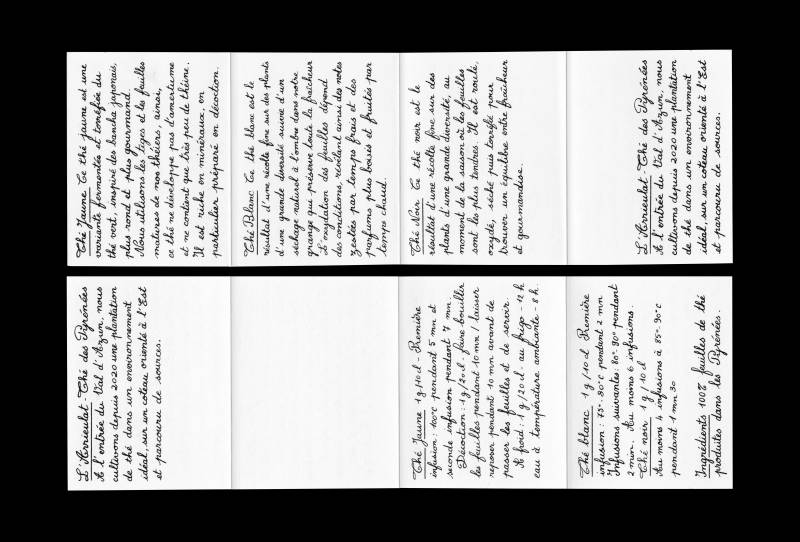 Thé Jaune Ce thé jaune est une
variante fermentée et torréfiée du
thé vert, inspiré des bancha japonais,
plus rond et plus gourmand.
Nous utilisons les tiges et les feuilles
matures de nos théiers, ainsi,
ce thé ne développe pas d'amertume
et ne contient que très peu de théine.
Il est riche en minéraux, en
particulier préparé en décoction.
Thé Blanc Ce thé blanc est le
résultat d'une récolte fine sur des plants
d'une grande diversité suivie d'un
séchage naturel à l'ombre dans notre
grange qui préserve toute la fraîcheur
L'oxydation des feuilles dépend
des conditions, révélant ainsi des notes
zestées par temps frais et des
parfums plus boisés et fruités par
temps chaud.
Thé Noir Ce thé noir est le
résultat d'une récolte fine sur des
plants d'une grande diversité, au
moment de la saison où les feuilles
sont les plus tendres. Il est roulé,
oxydé, séché puis torréfié pour
trouver un équilibre entre fraîcheur
et gourmandise.
L'Arrieulat - Thé des Pyrénées
A l'entrée du Val d'Azun, nous
cultivons depuis 2020 une plantation
de thé dans un environnement
idéal, sur un coteau orienté à l'Est
et parcouru de sources.
L'Arrieulat - Thé des Pyrénées
A l'entrée du Val d'Azun, nous
cultivons depuis 2020 une plantation
de thé dans un environnement
idéal, sur un coteau orienté à l'Est
et parcouru de sources.
Thé Jaune 1g/10cl - Première
infusion : 100°C pendant 5 mn et
seconde infusion pendant 7 mn.
Décoction : 1g/20cl - faire bouillir
les feuilles pendant 10 mn / laisser
reposer pendant 10 mn avant de
passer les feuilles et de servir.
A froid : 1g/20cl - au frigo - 12 h
eau à température ambiante - 8 h.
Thé blanc 1g/10cl Première
infusion : 75°-80°C pendant 2 mn
Infusions suivantes: 80°-90° pendant
2 mn. Au moins 6 infusions.
Thé noir 1g/10cl
Au moins 4 infusions à 85°-90°C
pendant 1 mn 30
Ingrédients 100% feuilles de thé
produites dans les Pyrénées.